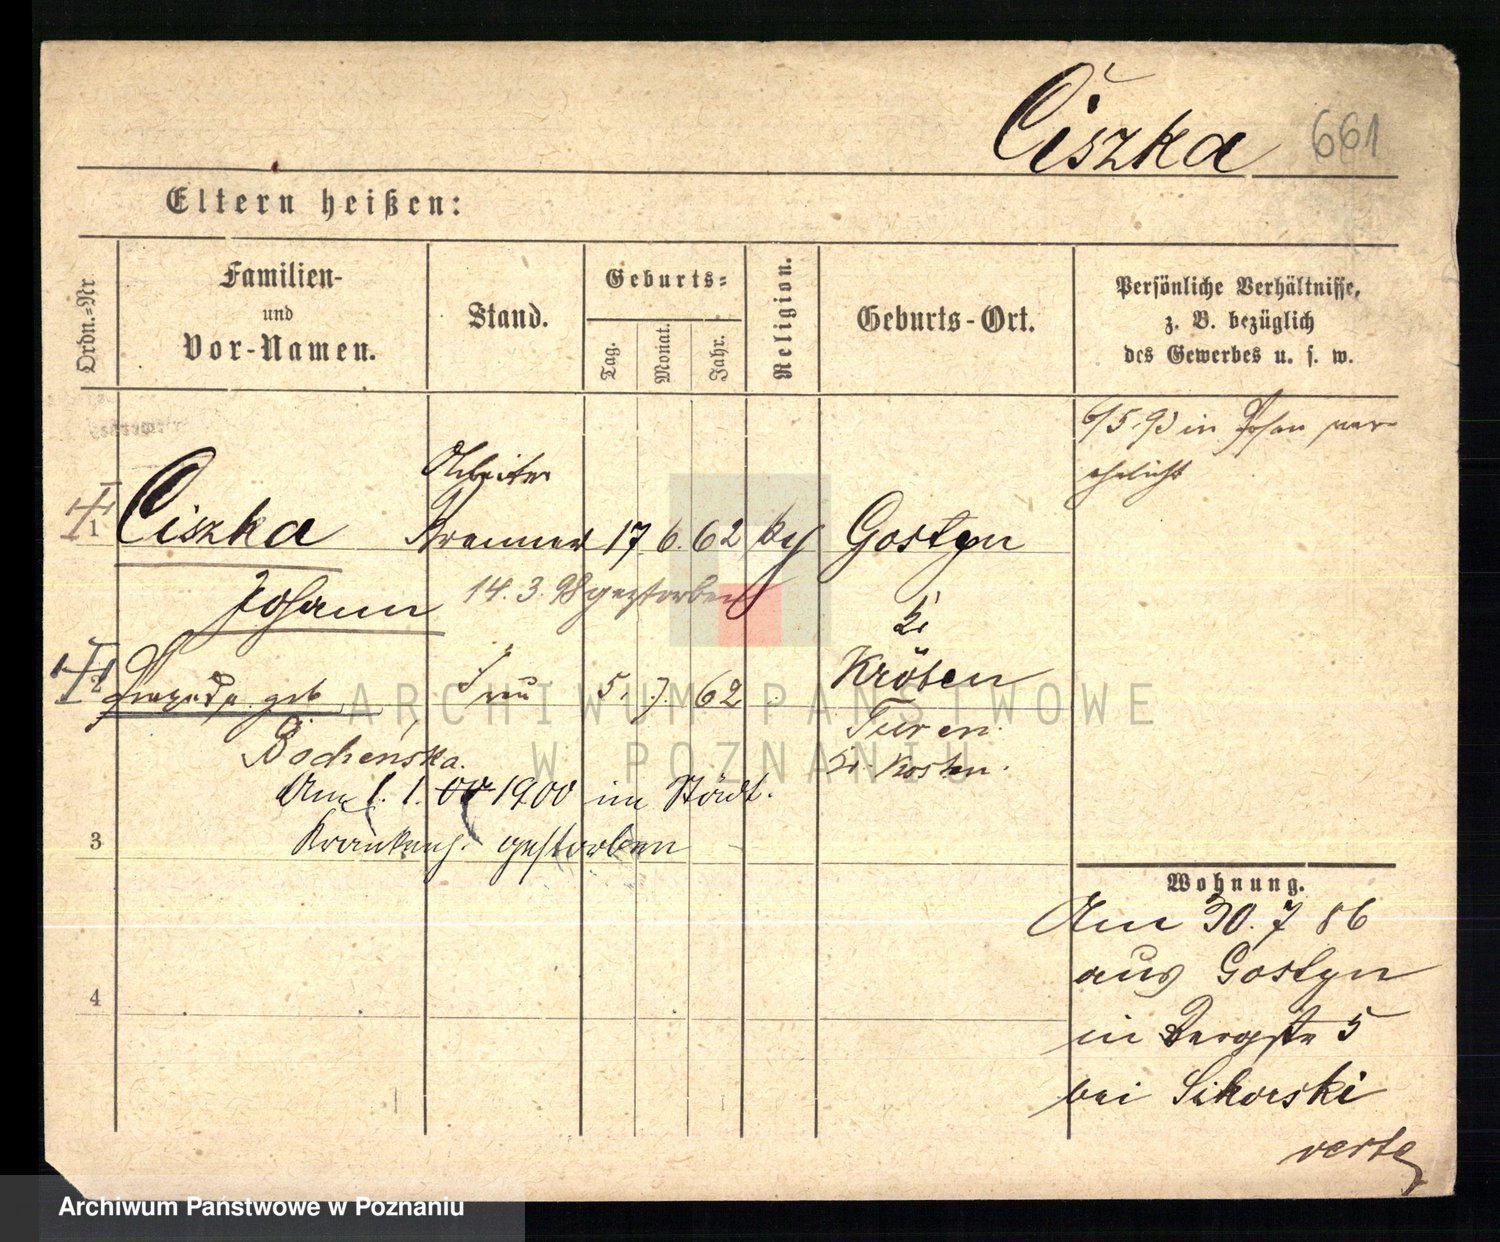 Ciszka 661
Eltern heißen:
Ordn.=Nr
Familien-
und
Vor-Namen.
Stand.
Geburts=
Tag.
Monat.
Jahr.
Religion.
Geburts-Ort.
Persönliche Verhältnisse,
z. B. bezüglich
des Gewerbes u. s. w.
6/5.93 in Posen ver-
ehelicht
Arbeiter
1 Ciszka 17 6. 62 Gostyn
Johann
14. 3. 98 gestorben
Kr
Kröben
2 geb Frau 5. 7. 62
Turen.
Bocheńska.
Kr. Kosten.
Am 1. 1. 00 1900 im Städt.
Krankenh. gestorben
3
4
Wohnung.
Am 30. 7 86
aus Gostyn
in Bergstr 5
bei Sikorski
verte
ARCHIWUM PAŃSTWOWE
W POZNANIU
Archiwum Państwowe w Poznaniu